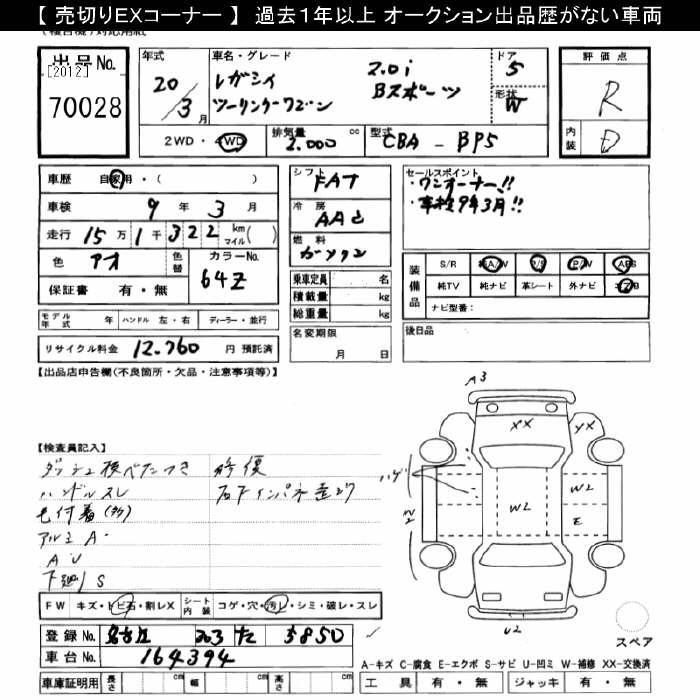 【 売切りEXコーナー 】 過去１年以上 オークション出品歴がない車両
出品No.
[2012]
70028
年式
20/3月
車名・グレード
レガシィ 2.0i
ツーリングワゴン Bスポーツ
ドア
5
形状
W
評価点
R
内装
D
2WD・4WD 排気量 2.000 cc 型式 CBA - BP5
車歴 自家用・( )
車検 9年 3月
走行 15万1千322 km マイル( )
色 アオ 色替 カラーNo. 64Z
保証書 有・無
モデル年式 年 ハンドル 左・右 ディーラー・並行
リサイクル料金 12.760 円 預託済
シフト FAT
冷房 AAC
燃料 ガソリン
乗車定員 名
積載量 kg
総重量 kg
名変期限
月 日
セールスポイント
・ワンオーナー!!
・車検9年3月!!
装備品 S/R 純A/W P/S P/W ABS
純TV 純ナビ 革シート 外ナビ エアB
ナビ型番：
後日品
【出品店申告欄(不良箇所・欠品・注意事項等)】
【検査員記入】
ダッシュ板べたつき 修復
ハンドルスレ 右下インパネ歪み
毛付着(多)
アルミ A・
A U
下廻り S
A3
XX
YX
ハゲ
W2
W2
E
W2
U2
スペア
FW キズ・トビ石・割レX シート内装 コゲ・穴・汚レ・シミ・破レ・スレ
登録No. 名古屋 303 た 5850
車台No. 164394
車庫証明用 長さ cm 幅 cm 高さ cm
A-キズ C-腐食 E-エクボ S-サビ U-凹ミ W-補修 XX-交換済
工具 有・無 ジャッキ 有・無